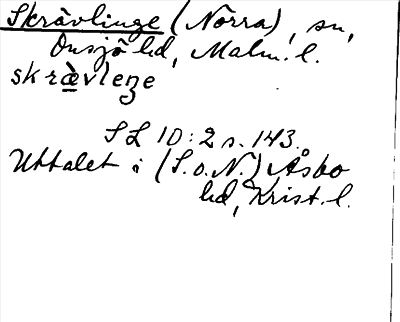 Skrävlinge (Norra), sn,
Onsjö hd, Malm. l.
skræ̀vleŋe
SL 10:2 s. 143.
Uttalet i (S. o. N.) Åsbo
hd, Krist. l.